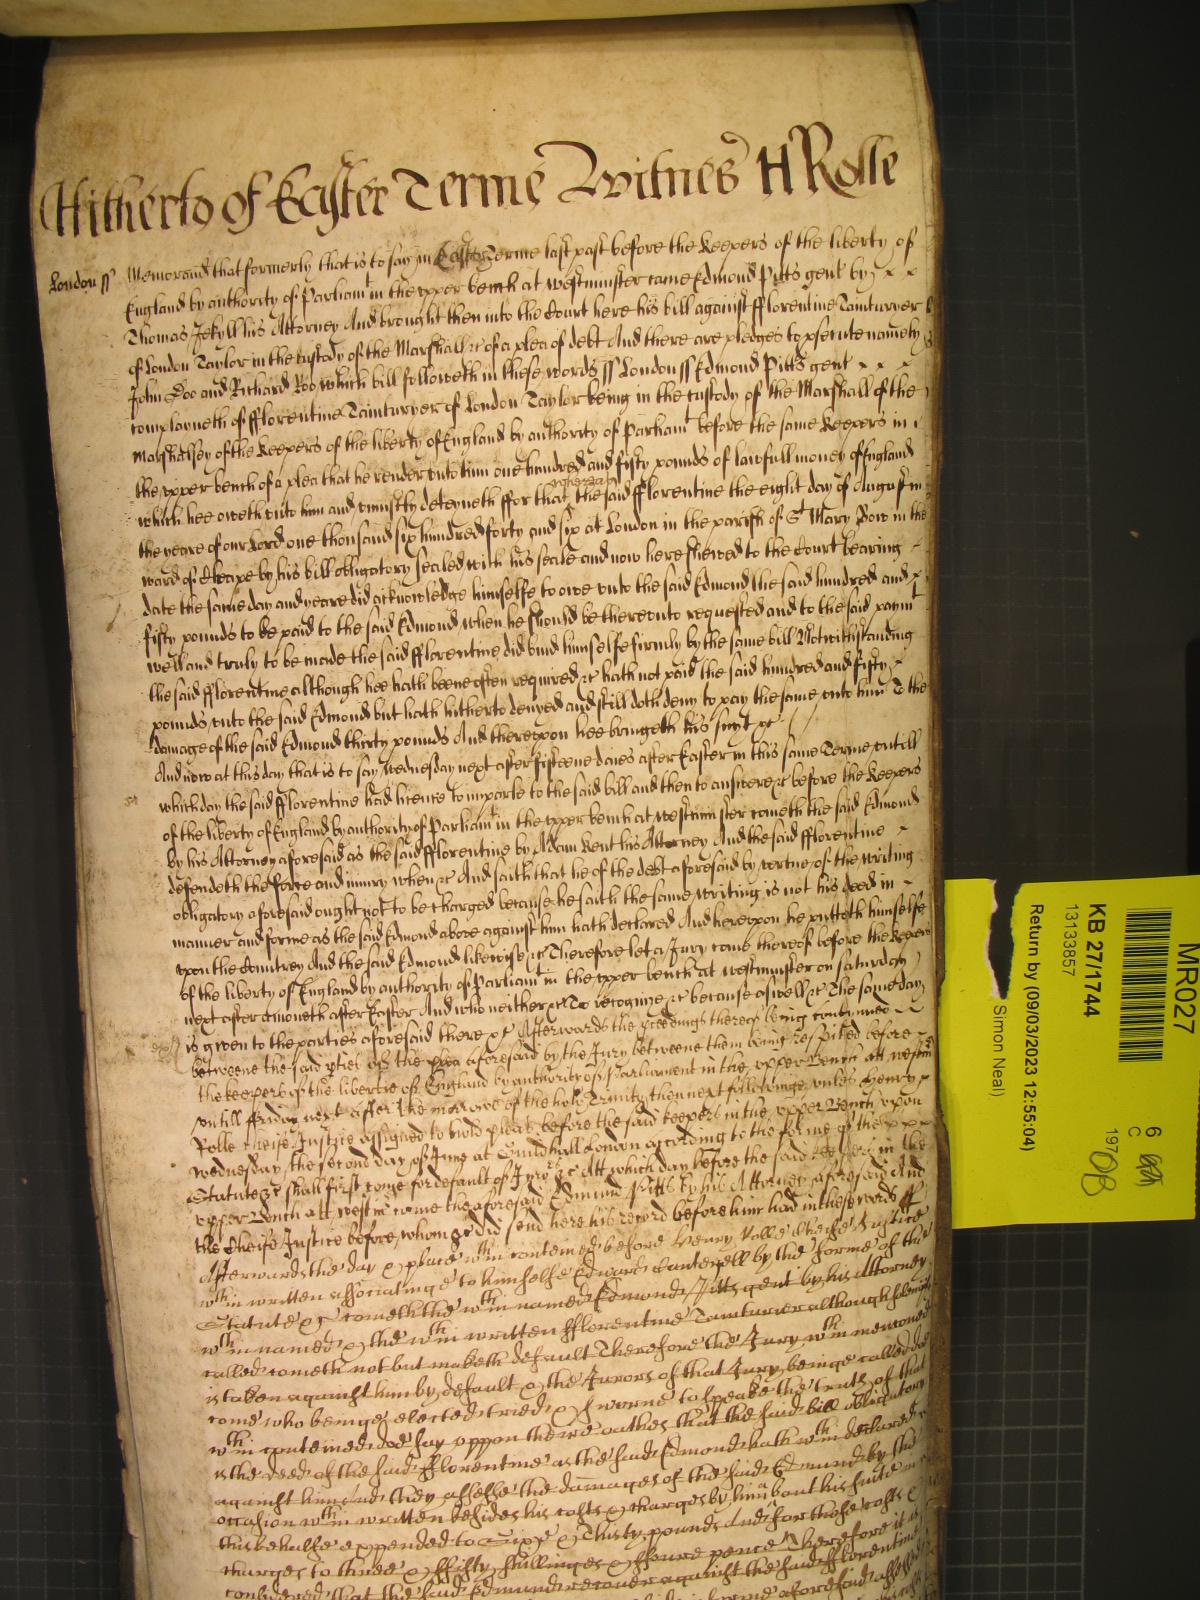 Hitherto of Easter Terme Witnes H Rolle
London ss Memorand that formerly that is to say in Easter Terme last past before the keepers of the liberty of
England by authority of Parliamt in the upper bench at Westminster came Edmond Pitts gent by
Thomas Jekyll his Attorney And brought then into the Court here his bill against fflorentine Tainturyer
of London Taylor in the custody of the Marshall &c of a plea of debt And there are pledges to psecute namely
John Doo and Richard Roo which bill followeth in these words ss London ss Edmond Pitts gent
complayneth of fflorentine Tainturyer of London Taylor being in the custody of the Marshall of the
Marshalsey of the keepers of the liberty of England by authority of Parliamt before the same keepers in
the upper bench of a plea that he render unto him one hundred and fifty pounds of lawfull money of England
which hee oweth unto him and uniustly deteyneth ffor that whereas the said fflorentine the eight day of August in
the yeare of our Lord one thousand six hundred forty and six at London in the parish of St Mary Bow in the
ward of Cheape by his bill obligatory sealed with his seale and now here shewed to the Court bearing
date the same day and yeare did acknowledge himselfe to owe unto the said Edmond the said hundred and
fifty pounds to be paid to the said Edmond when he should be thereunto requested and to the said paymt
well and truly to be made the said fflorentine did bind himselfe firmly by the same bill Notwithstanding
the said fflorentine although hee hath beene often required &c hath not paid the said hundred and fifty
pounds unto the said Edmond but hath hitherto denyed and still doth deny to pay the same unto him To the
damage of the said Edmond thirty pounds And thereupon hee bringeth his suyt &c
And now at this day that is to say wednesday next after fifteene daies after Easter in this same Terme untill
which day the said fflorentine had licence to imparle to the said bill and then to answere &c before the keepers
of the liberty of England by authority of Parliamt in the upper bench at westminster cometh the said Edmond
by his Attorney aforesaid as the said fflorentine by Adam Kent his Attorney And the said fflorentine
defendeth the force and iniury when &c And saith that he of the debt aforesaid by vertue of the writing
obligatory aforesaid ought not to be charged because he saith the same writing is not his deed in
manner and forme as the said Edmond above against him hath declared And hereupon he putteth himselfe
upon the Countrey And the said Edmond likewise &c Therefore let a Jury come thereof before the keepers
of the liberty of England by authority of Parliamt in the upper bench at westminster on saturday
next after a moneth after Easter And who neither &c To recognize &c because aswell &c The same day
is given to the parties aforesaid there &c Afterwards the pceedings thereof being continued
betweene the said pties of the plea aforesaid by the Jury betweene them being respited before
the keepers of the libertie of England by authority of Parliament in the upper Bench att westmr
untill ffriday next after the morrow of the holy Trinity then next followinge unles Henry
Rolle cheife Justice assigned to hold pleas before the said keepers in the upper Bench upon
wednesday the second day of June at Guildhall London according to the forme of the
Statute &c shall first come for default of Jurors &c Att which day before the said keepers in the
upper Bench att westmr came the aforesaid Edmund Pitts by his Attorney aforesaid And
the Cheife Justice before whom &c did send here his record before him had in these words ss
Afterwards the day & place wthin conteined before Henry Rolle cheife Justice
wthin written associatinge to himselfe Edward Cantrell by the forme of the
Statute &c cometh the wthin named Edmond Pitts gent by his Attorney
wthin named & the wthin written fflorentine Tainturier although solemnly
called cometh not but maketh default Therefore the Jury wthin mentioned
is taken against him by default & the Jurors of that Jury beinge called doe
come who beinge elected tried & sworne to speake the truth of that
wthin conteined doe say uppon theire oathes that the said bill obligatory
is the deed of the said fflorentine as the said Edmond hath wthin declared
against him And they assesse the damages of the said Edmund by the
occasion wthin written besides his costs & charges by him about his suite in
this behalfe expended to Sixpe & Thirty pounds And for those costs &
charges to three & ffifty shillinges & ffoure pence Therefore it is
considered that the said Edmund recover against the said fflorentine
MR027
6
C
197 08
KB 27/1744
13133857
Return by (09/03/2023 12:55:04)
Simon Neal)